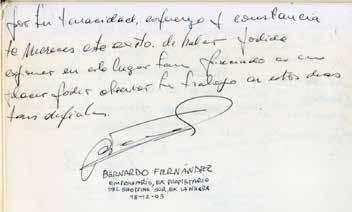 por tu tenacidad, esfuerzo y constancia
te mereces este exito. de haber podido
exponer en este lugar tan preciado es un
placer poder observar tu trabajo en estos dias
tan dificiles.
BERNARDO FERNÁNDEZ
EMPRESARIO, EX PROPIETARIO
DEL SHOPPING SUR, EX LA NEGRA
18-12-03